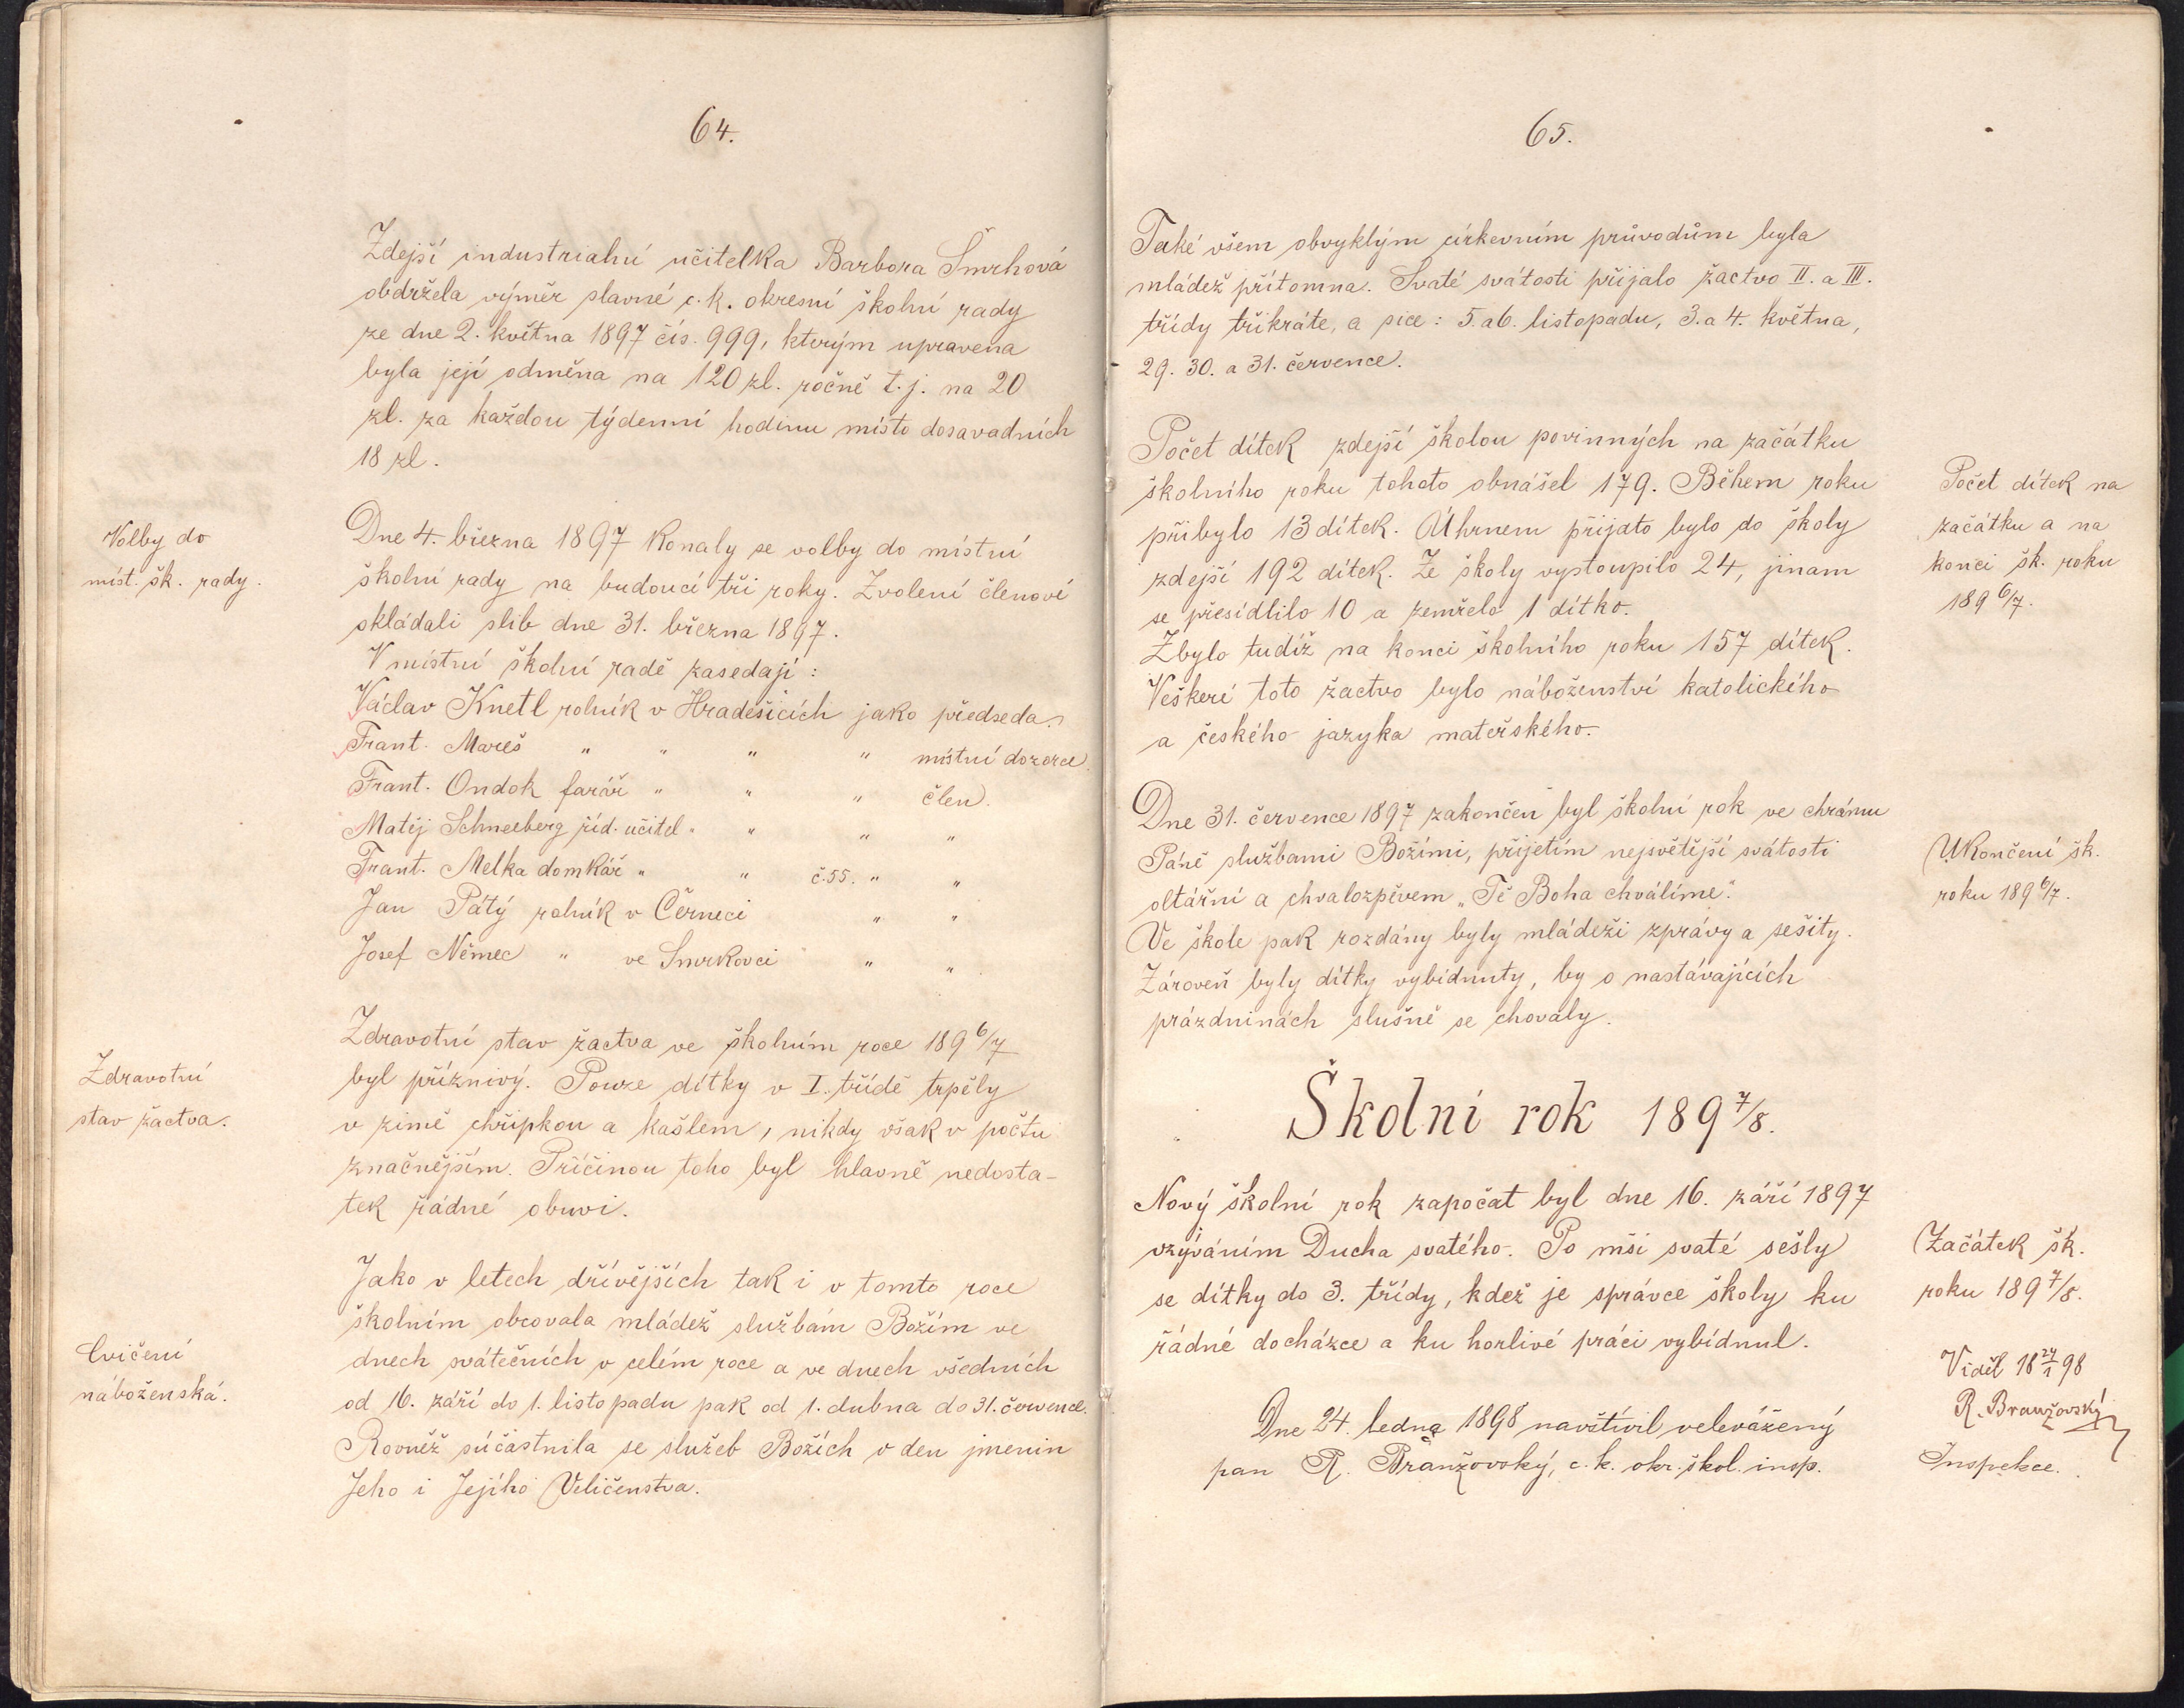 64.
Zdejší industriahní učitelka Barbora Šmrhová
obdržela výměr slavné c. k. okresní školní rady
ze dne 2. května 1897 čís. 999, kterým upravena
byla její odměna na 120 zl. ročně t. j. na 20
zl. za každou týdenní hodinu místo dosavadních
18 zl.
Volby do
míst. šk. rady.
Dne 4. března 1897 konaly se volby do místní
školní rady na budoucí tři roky. Zvolení členové
skládali slib dne 31. března 1897.
V místní školní radě zasedají:
Václav Knetl rolník v Hradešicích jako předseda.
Frant. Mareš " " " " místní dozorce.
Frant. Ondok farář " " " člen.
Matěj Schneeberg říd. učitel " " " "
Frant. Melka domkář " " č. 55. " "
Jan Pátý rolník v Černeci " "
Josef Němec " ve Smrkovci " "
Zdravotní
stav žactva.
Zdravotní stav žactva ve školním roce 189 6/7
byl příznivý. Pouze dítky v I. třídě trpěly
v zimě chřipkou a kašlem, nikdy však v počtu
značnějším. Příčinou toho byl hlavně nedosta-
tek řádné obuvi.
Cvičení
náboženská.
Jako v letech dřívějších tak i v tomto roce
školním obcovala mládež službám Božím ve
dnech svátečních v celém roce a ve dnech všedních
od 16. září do 1. listopadu pak od 1. dubna do 31. července.
Rovněž súčastnila se služeb Božích v den jmenin
Jeho i Jejího Veličenstva.
65.
Také všem obvyklým církevním průvodům byla
mládež přítomna. Svaté svátosti přijalo žactvo II. a III.
třídy třikráte, a sice: 5. a 6. listopadu, 3. a 4. května,
29. 30. a 31. července.
Počet dítek zdejší školou povinných na začátku
školního roku tohoto obnášel 179. Během roku
přibylo 13 dítek. Úhrnem přijato bylo do školy
zdejší 192 dítek. Ze školy vystoupilo 24, jinam
se přesídlilo 10 a zemřelo 1 dítko.
Zbylo tudíž na konci školního roku 157 dítek.
Veškeré toto žactvo bylo náboženství katolického
a českého jazyka mateřského.
Počet dítek na
začátku a na
konci šk. roku
189 6/7.
Dne 31. července 1897 zakončen byl školní rok ve chrámu
Páně službami Božími, přijetím nejsvětější svátosti
oltářní a chvalozpěvem „Tě Boha chválíme“.
Ve škole pak rozdány byly mládeži zprávy a sešity.
Zároveň byly dítky vybídnuty, by o nastávajících
prázdninách slušně se chovaly.
Ukončení šk.
roku 189 6/7.
Školní rok 189 7/8.
Nový školní rok započat byl dne 16. září 1897
vzýváním Ducha svatého. Po mši svaté sešly
se dítky do 3. třídy, kdež je správce školy ku
řádné docházce a ku horlivé práci vybídnul.
Začátek šk.
roku 189 7/8.
Viděl 18 24/1 98
R. Branžovský
Dne 24. ledna 1898 navštívil velevážený
pan R. Branžovský, c. k. okr. škol. insp.
Inspekce.